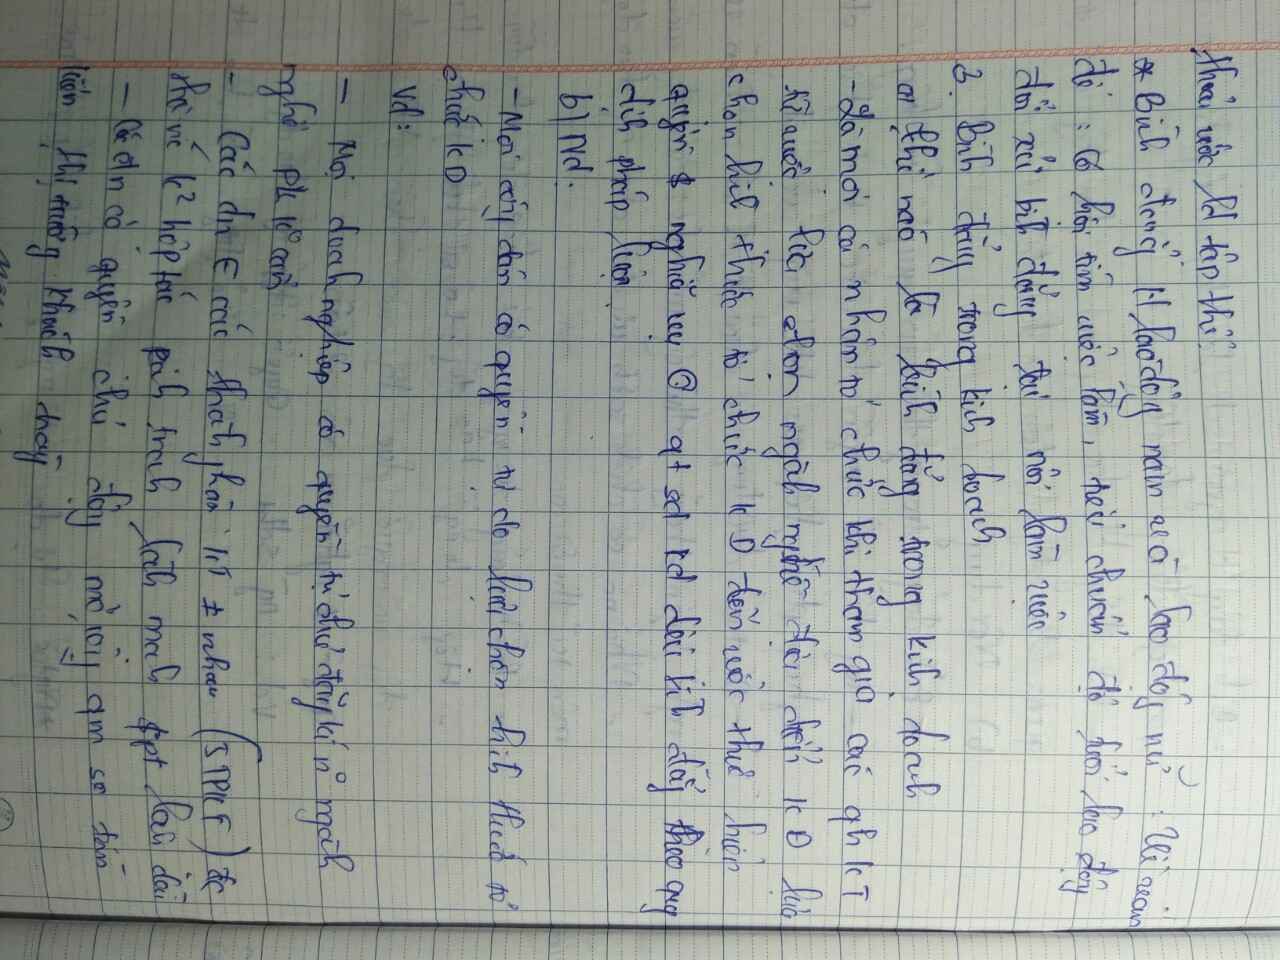 thỏa ước lđ tập thể
* Bình đẳng lđ lao động nam và lao động nữ : Vì vậy
đó : Cơ hội tìm việc làm, tiêu chuẩn độ tuổi lao động
đối xử bình đẳng tại nơi làm việc
2. Bình đẳng trong kinh doanh
a) thế nào là bình đẳng trong kinh doanh
- Là mọi cá nhân tổ chức khi tham gia các qh KT
từ việc lựa chọn ngành nghề địa điểm KD lựa
chọn hình thức tổ chức KD đến việc thực hiện
quyền & nghĩa vụ qt sx kd đều bình đẳng theo quy
định pháp luật
b) Nd:
- Mọi công dân có quyền tự do lựa chọn hình thức tổ
chức KD
Vd:
- Mọi doanh nghiệp có quyền tự chủ đăng kí ngành
nghề pl k cấm
- Các dn ∈ các thành phần kt ≠ nhau (5TPKT) đc
k² hợp tác cạnh tranh lành mạnh pt lâu dài
- Các dn có quyền chủ động mở rộng qm sx tìm
kiếm thị trường khách hàng